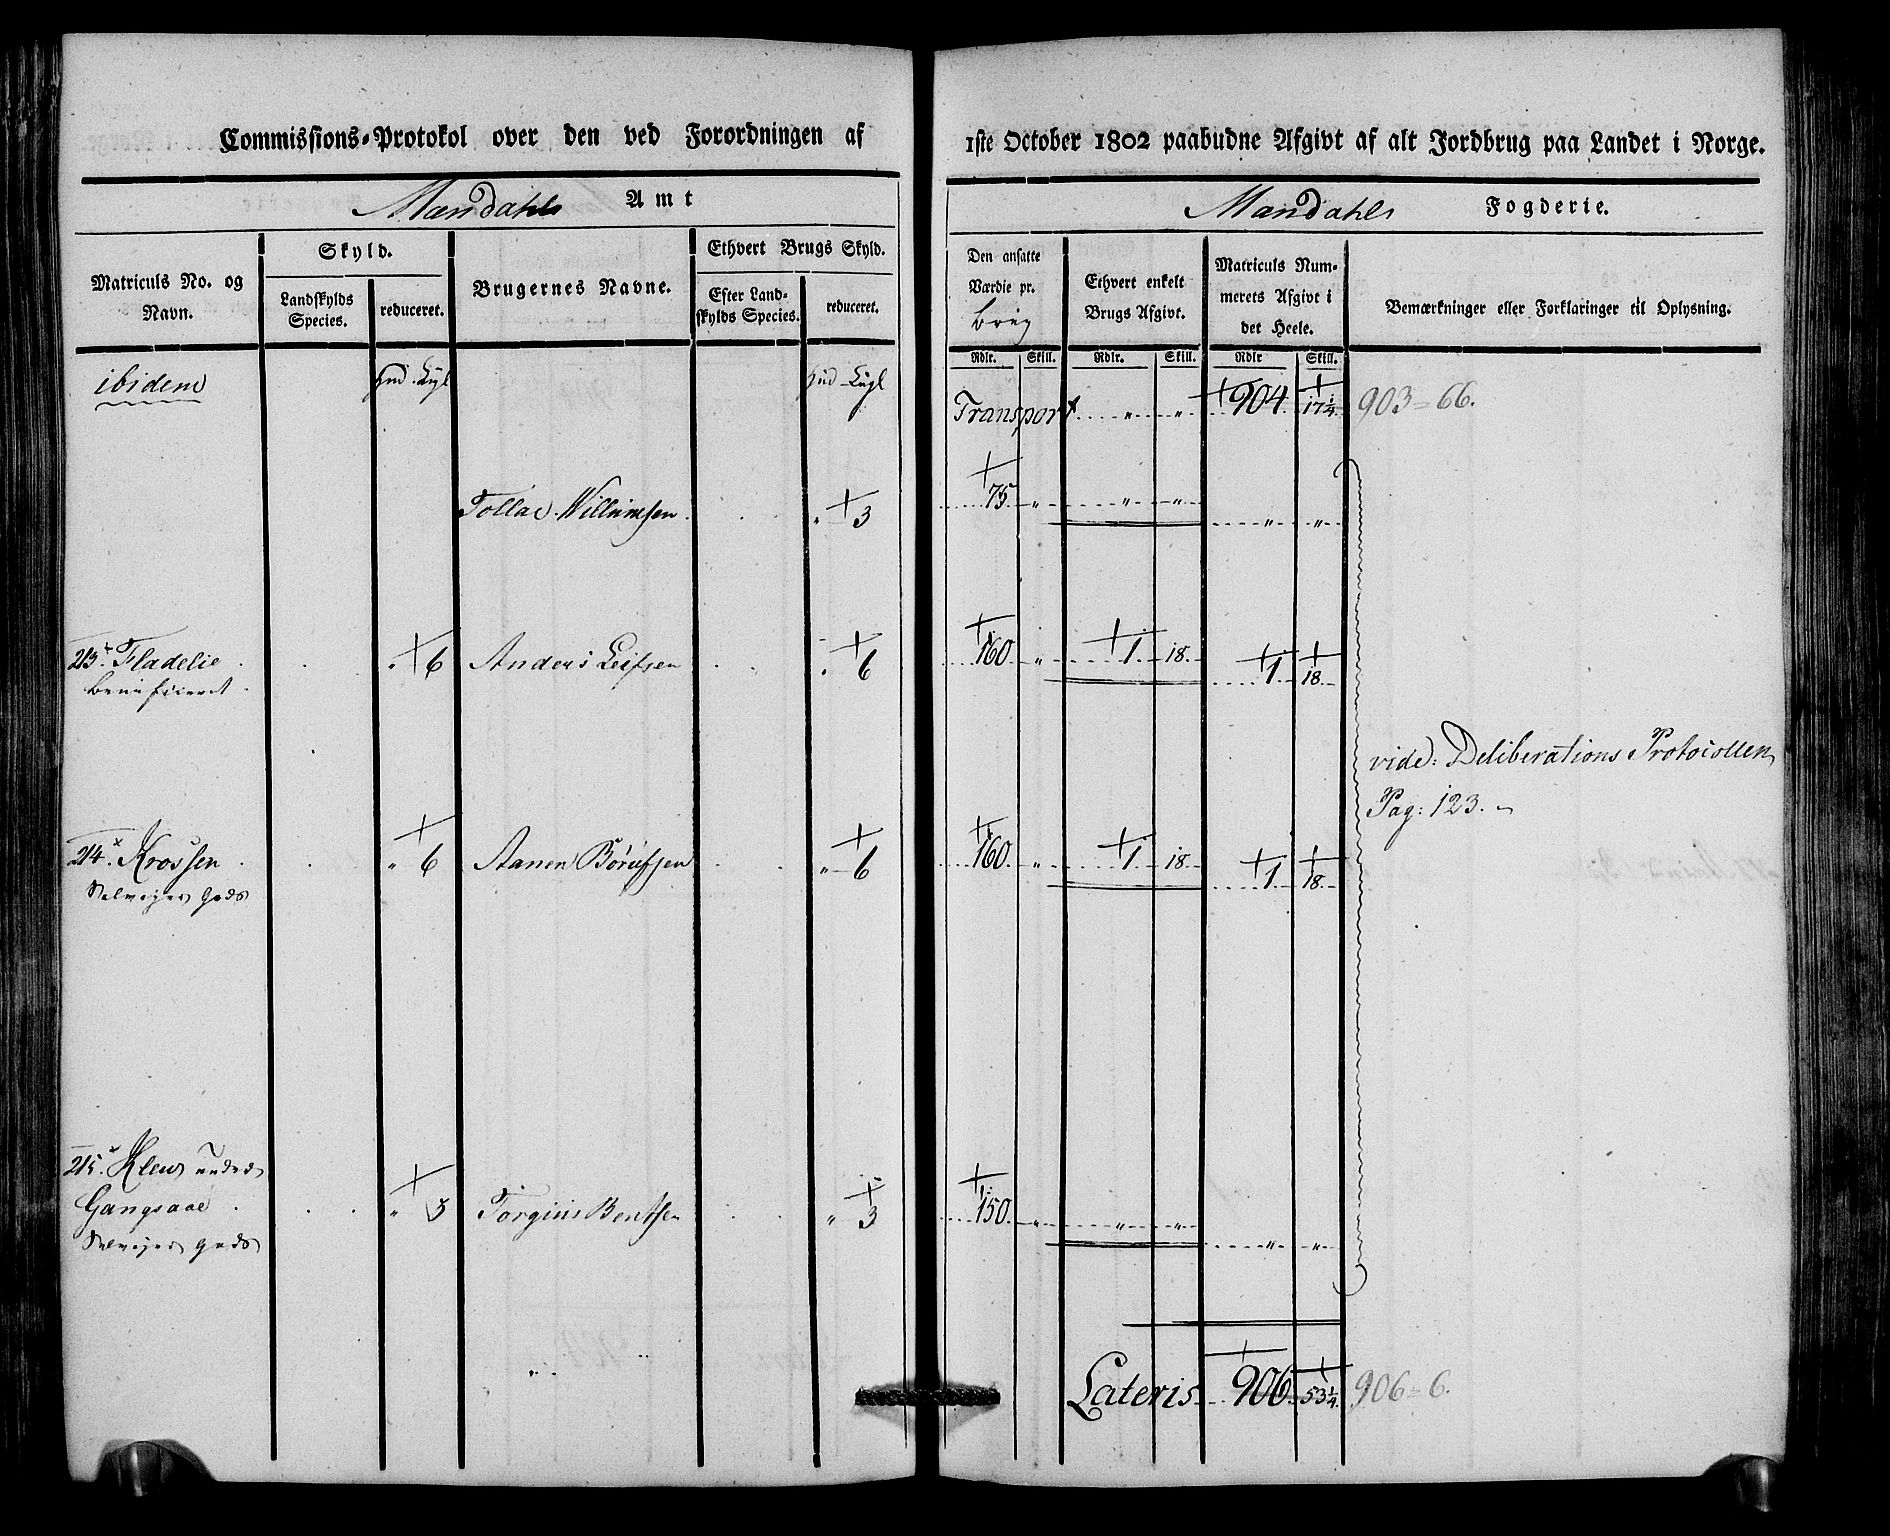 Commissions-Protokol over den ved Forordningen af
Mandahls Amt
Matriculs No. og Navn.
Skyld.
Landskylds Species.
reduceret.
Brugernes Navne.
Ethvert Brugs Skyld.
Efter Landskylds Species.
reduceret.
ibidem
Hud Kugl
Hud Kugl
Tollac Willumsen " 3
213. Fladelie " 6 Anders Leifsen " 6
beneficeret
214. Krossen " 6 Aanen Börufsen " 6
Selveyer Gods
215. Klew under
Gangsaae " 3 Torgius Bentsen " 3
Selveyer Gods
1ste October 1802 paabudne Afgivt af alt Jordbrug paa Landet i Norge.
Mandahls Fogderie.
Den ansatte Værdie pr. brug
Ethvert enkelt Brugs Afgivt.
Matriculs Nummerets Afgivt i det Heele.
Bemærkninger eller Forklaringer til Oplysning.
Rdlr. Skill. Rdlr. Skill. Rdlr Skill.
Transport " " 904 17 1/4 903 = 66.
75 " " " " "
160 " 1 18 1 18
vide: Deliberations Protocollen
Pag: 123.
160 " 1 18 1 18
150 " " " " "
Lateris 906 53 1/4 906 = 6.